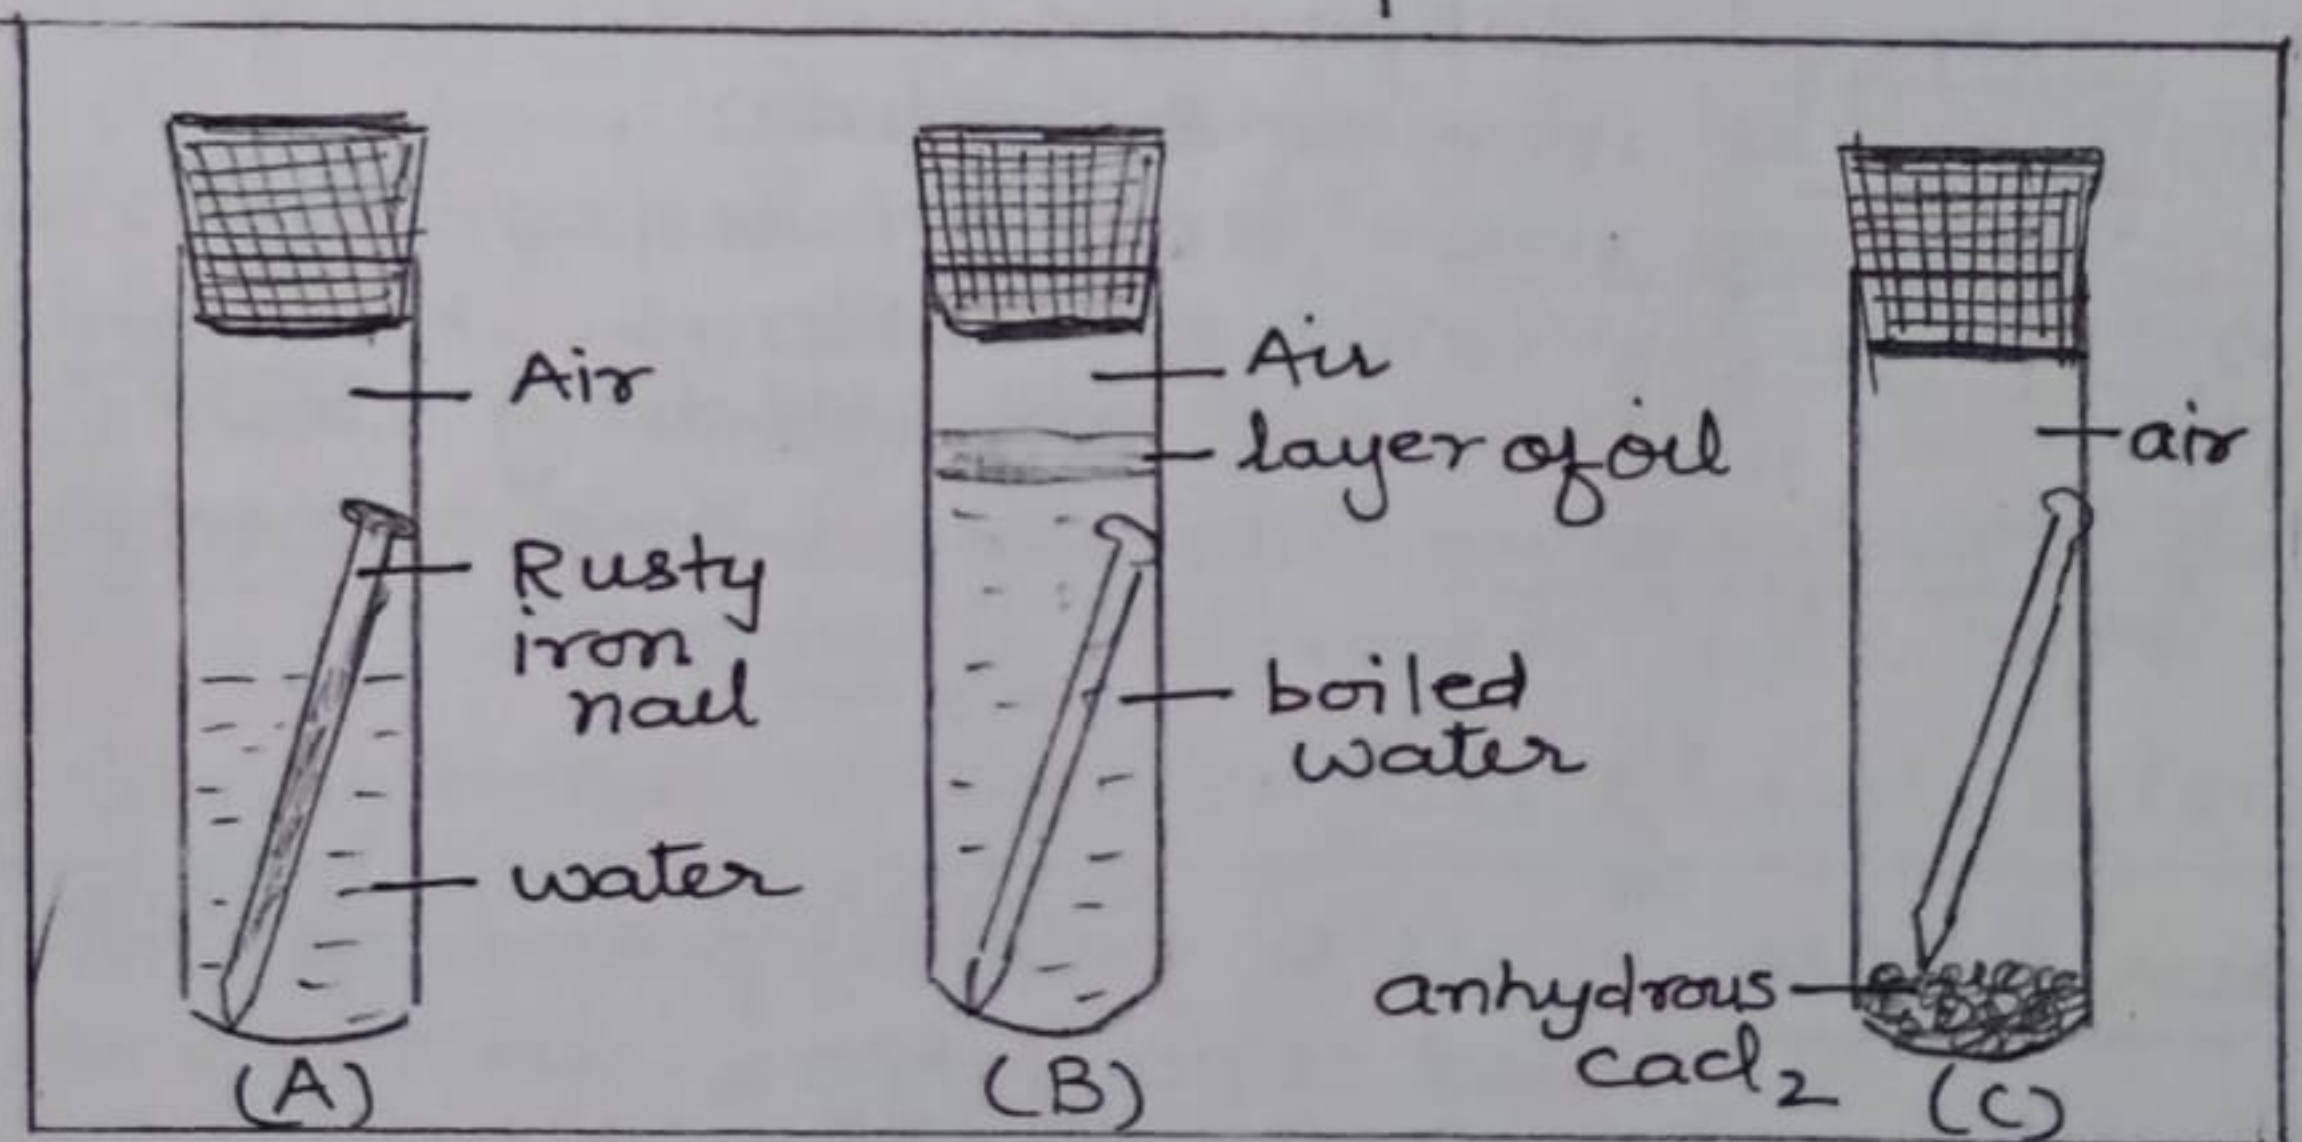 Air
Rusty
iron
nail
water
(A)
Air
layer of oil
boiled
water
(B)
air
anhydrous
cacl2
(C)